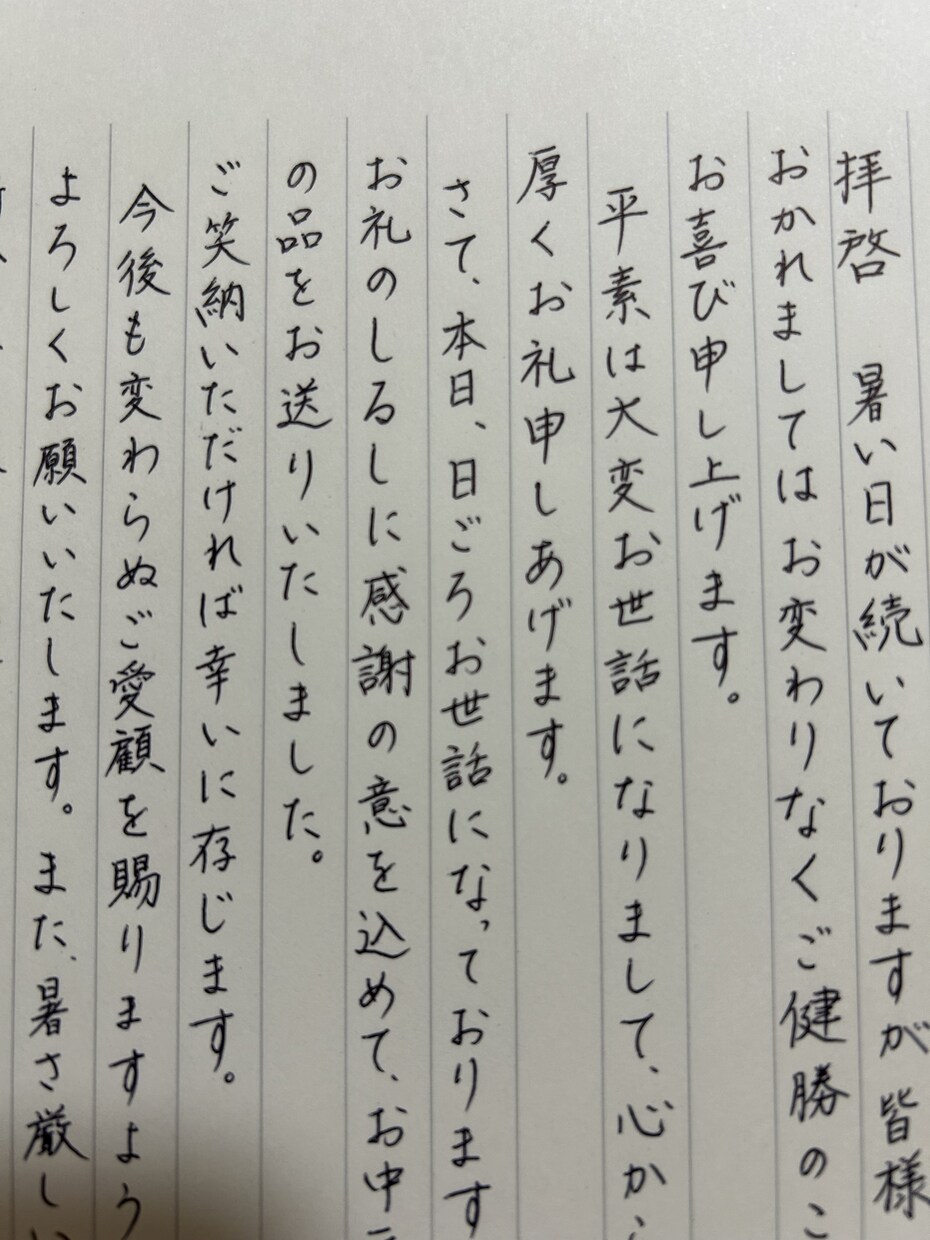 拝啓 暑い日が続いておりますが皆様
おかれましてはお変わりなくご健勝のこ
お喜び申し上げます。
平素は大変お世話になりまして、心か
厚くお礼申しあげます。
さて、本日、日ごろお世話になっております
お礼のしるしに感謝の意を込めて、お中
の品をお送りいたしました。
ご笑納いただければ幸いに存じます。
今後も変わらぬご愛顧を賜りますよう
よろしくお願いいたします。また、暑さ厳しい